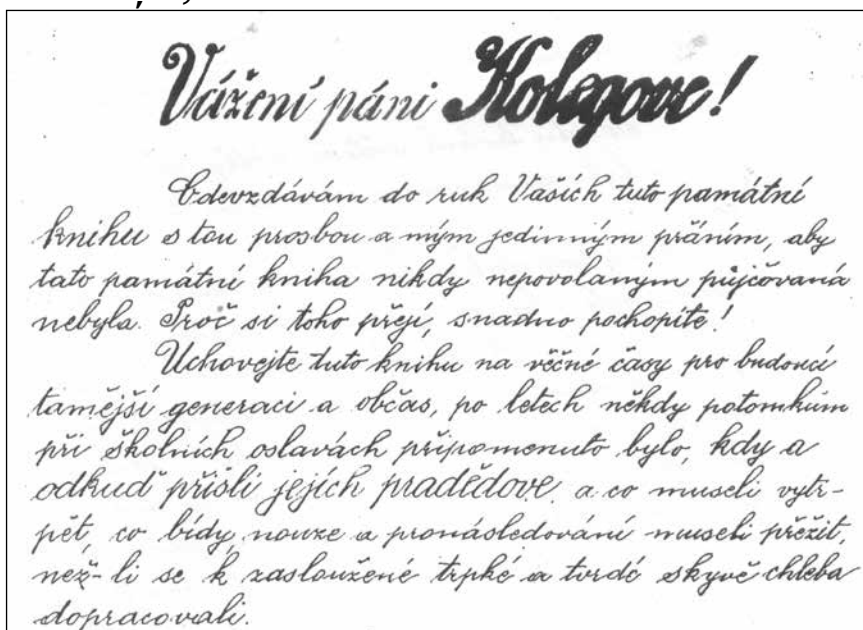 Vážení páni Kolegove!
Odevzdávám do ruk Vašich tuto památní
knihu s tou prosbou a mým jedinným přáním, aby
tato památní kniha nikdy nepovolaným půjčovaná
nebyla. Proč si toho přejí, snadno pochopíte!
Uchovejte tuto knihu na věčné časy pro budoucí
tamější generaci a občas, po letech někdy potomkům
při školních oslavách připomenuto bylo, kdy a
odkuď přišli jejích pradědove, a co museli vytr-
pět, co bídy, nouze a pronásledování museli přežit,
než-li se k zasloužené trpké a tvrdé skyvě chleba
dopracovali.